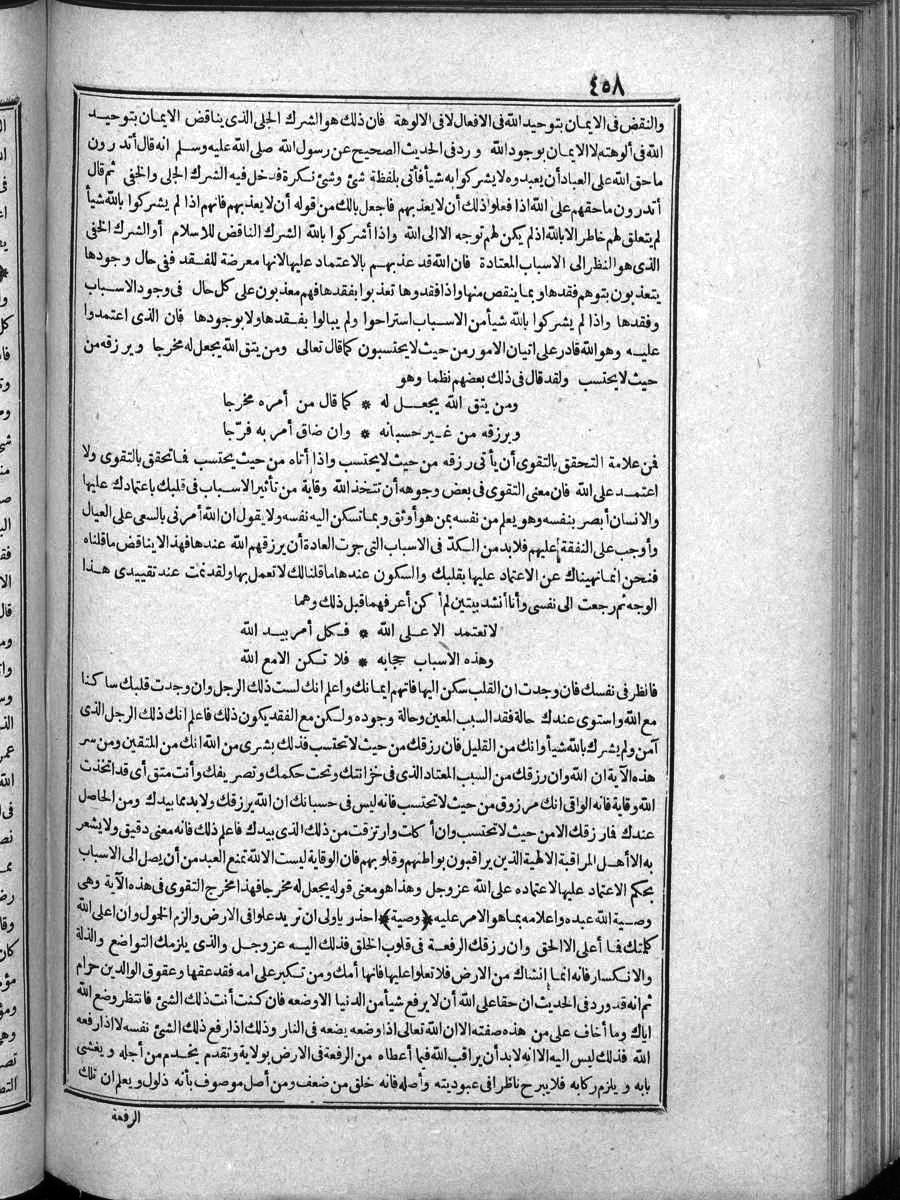 ٤٥٨
والنقض فى الايمان بتوحيد الله فى الافعال لا فى الالوهة فان ذلك هو الشرك الجلى الذى يناقض الايمان بتوحيد
الله فى ألوهته لا الايمان بوجود الله ورد فى الحديث الصحيح عن رسول الله صلى الله عليه وسلم انه قال أتدرون
ما حق الله على العباد أن يعبدوه لا يشركوا به شيأ فأتى بلفظة شئ وشئ نكرة فدخل فيه الشرك الجلى والخفى ثم قال
أتدرون ما حقهم على الله اذا فعلوا ذلك أن لا يعذبهم فاجعل بالك من قوله أن لا يعذبهم فانهم اذا لم يشركوا بالله شيأ
لم يتعلق لهم خاطر الا بالله اذ لم يكن لهم توجه الا الى الله واذا أشركوا بالله الشرك الناقض للاسلام أو الشرك الخفى
الذى هو النظر الى الاسباب المعتادة فان الله قد عذبهم بالاعتماد عليها لانها معرضة للفقد ففى حال وجودها
يتعذبون بتوهم فقدها وبما ينقص منها واذا فقدوها تعذبوا بفقدها فهم معذبون على كل حال فى وجود الاسباب
وفقدها واذا لم يشركوا بالله شيأ من الاسباب استراحوا ولم يبالوا بفقدها ولا بوجودها فان الذى اعتمدوا
عليه وهو الله قادر على اتيان الامور من حيث لا يحتسبون كما قال تعالى ومن يتق الله يجعل له مخرجا ويرزقه من
حيث لا يحتسب ولقد قال فى ذلك بعضهم نظما وهو
ومن يتق الله يجعل له * كما قال من أمره مخرجا
ويرزقه من غير حسبانه * وان ضاق أمر به فرّجا
فمن علامة التحقق بالتقوى أن يأتى رزقه من حيث لا يحتسب واذا أتاه من حيث يحتسب فما تحقق بالتقوى ولا
اعتمد على الله فان معنى التقوى فى بعض وجوهه أن تتخذ الله وقاية من تأثير الاسباب فى قلبك باعتمادك عليها
والانسان أبصر بنفسه وهو يعلم من نفسه بمن هو أوثق وبما تسكن اليه نفسه ولا يقول ان الله أمرنى بالسعى على العيال
وأوجب على النفقة عليهم فلا بد من الكدّ فى الاسباب التى جرت العادة أن يرزقهم الله عندها فهذا لا يناقض ما قلناه
فنحن انما نهيناك عن الاعتماد عليها بقلبك والسكون عندها ما قلنا لك لا تعمل بها ولقد نمت عند تقييدى هذا
الوجه ثم رجعت الى نفسى وأنا أنشد بيتين لم أكن أعرفهما قبل ذلك وهما
لا تعتمد الا على الله * فكل أمر بيد الله
وهذه الاسباب حجابه * فلا تكن الا مع الله
فانظر فى نفسك فان وجدت ان القلب سكن اليها فاتهم ايمانك واعلم انك لست ذلك الرجل وان وجدت قلبك ساكنا
مع الله واستوى عندك حالة فقد السبب المعين وحالة وجوده ولكن مع الفقد يكون ذلك فاعلم انك ذلك الرجل الذى
آمن ولم يشرك بالله شيأ وانك من القليل فان رزقك من حيث لا تحتسب فذلك بشرى من الله انك من المتقين ومن سر
هذه الآية ان الله وان رزقك من السبب المعتاد الذى فى خزانتك وتحت حكمك وتصريفك وأنت متق أى قد اتخذت
الله وقاية فانه الواقى انك مرزوق من حيث لا تحتسب فانه ليس فى حسبانك ان الله يرزقك ولا بد مما بيدك ومن الحاصل
عندك فما رزقك الا من حيث لا تحتسب وان أكلت وارتزقت من ذلك الذى بيدك فاعلم ذلك فانه معنى دقيق ولا يشعر
به الا أهل المراقبة الالهية الذين يراقبون بواطنهم وقلوبهم فان الوقاية ليست الا لله تمنع العبد من أن يصل الى الاسباب
بحكم الاعتماد عليها لاعتماده على الله عز وجل وهذا هو معنى قوله يجعل له مخرجا فهذا مخرج التقوى فى هذه الآية وهى
وصية الله عبده واعلامه بما هو الامر عليه *(وصية)* احذر يا ولى ان تريد علوا فى الارض والزم الخمول وان أعلى الله
كلمتك فما أعلى الا الحق وان رزقك الرفعة فى قلوب الخلق فذلك اليه عز وجل والذى يلزمك التواضع والذلة
والانكسار فانه انما انشاك من الارض فلا تعلو اعليها فانها أمك ومن تكبر على امه فقد عقها وعقوق الوالدين حرام
ثم انه قد ورد فى الحديث ان حقا على الله أن لا يرفع شيأ من الدنيا الا وضعه فان كنت أنت ذلك الشئ فانتظر وضع الله
اياك وما أخاف على من هذه صفته الا ان الله تعالى اذا وضعه يضعه فى النار وذلك اذا رفع ذلك الشئ نفسه لا اذا رفعه
الله فذلك ليس اليه الا انه لا بد أن يراقب الله فيما أعطاه من الرفعة فى الارض بولاية وتقدم يخدم من أجله ويغشى
بابه ويلزم ركابه فلا يبرح ناظرا فى عبوديته وأصله فانه خلق من ضعف ومن أصل موصوف بأنه ذلول ويعلم ان تلك
الرفعة